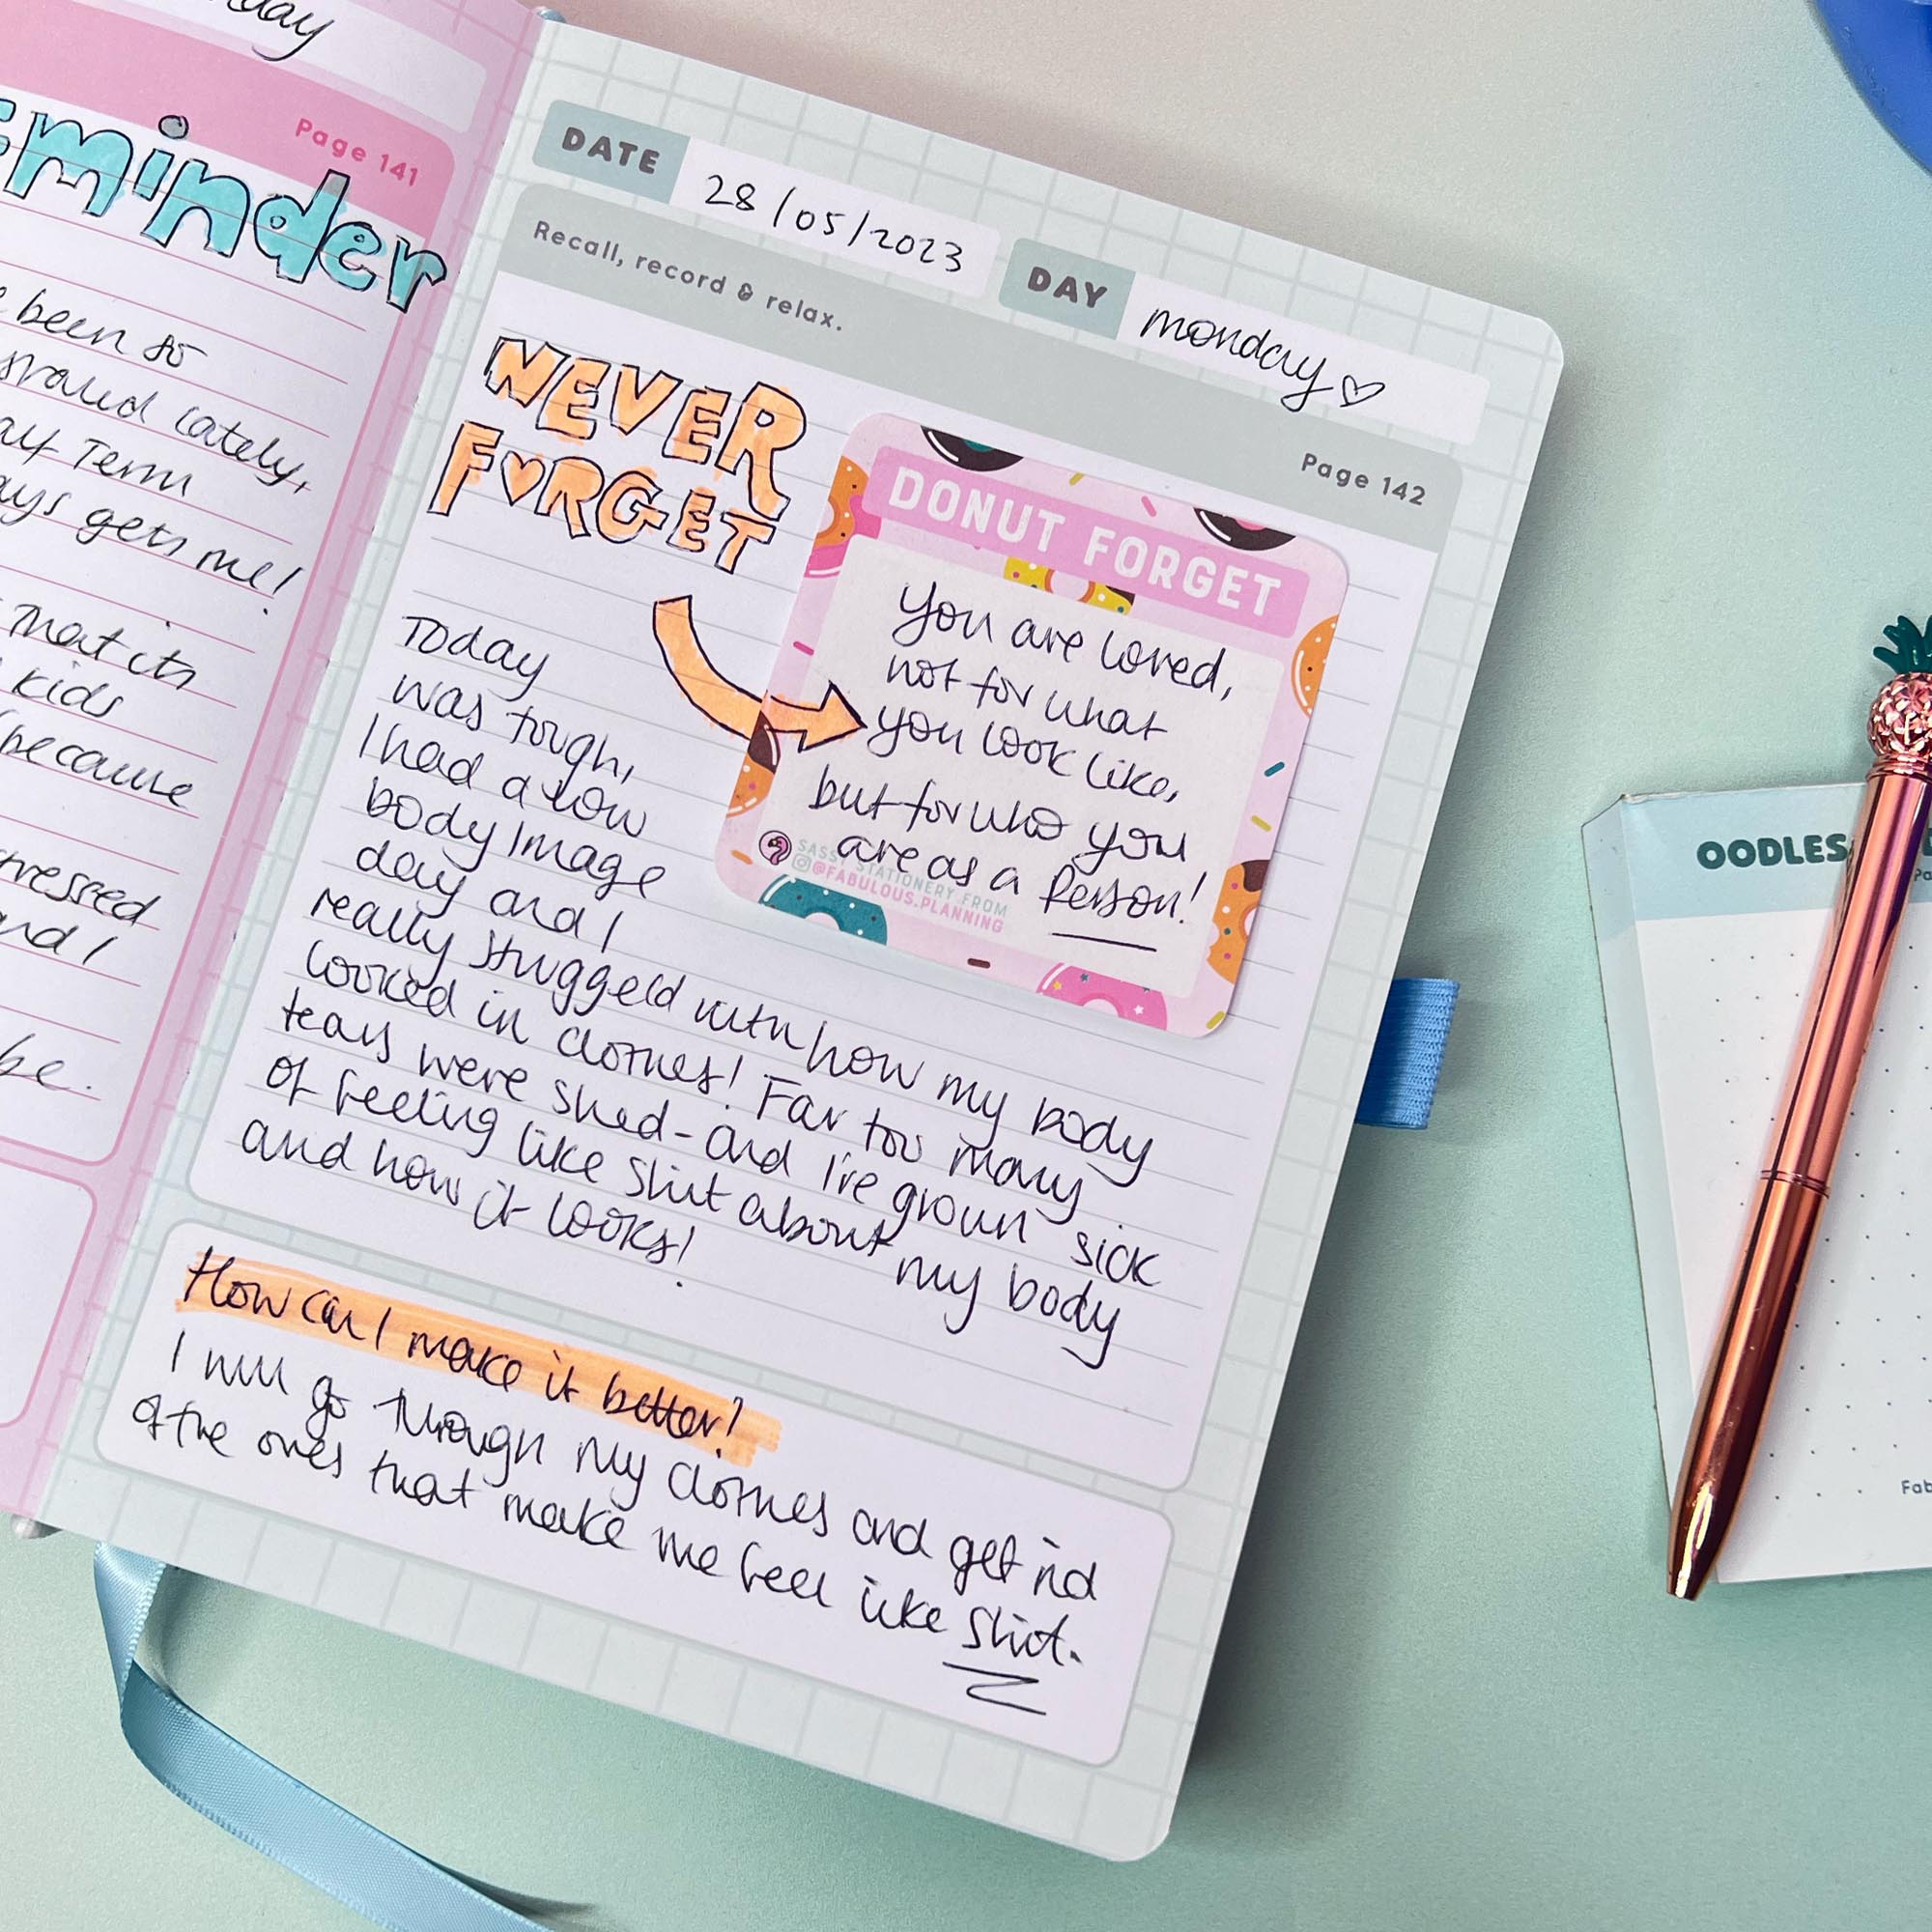 day
Page 141
minder
been so
lately,
Term
gets me!
that its
kids
because
stressed
and I
be.
DATE 28/05/2023 DAY monday
Recall, record & relax.
Page 142
NEVER
FORGET
DONUT FORGET
You are loved,
not for what
you look like,
but for who you
are as a Person!
SASSY STATIONERY FROM
@FABULOUS.PLANNING
Today
was tough,
I had a low
body image
day and I
really struggeld with how my body
looked in clothes! Far too many
tears were shed - and I've grown sick
of feeling like shit about my body
and how it looks!
How can I make it better?
I will go through my clothes and get rid
of the ones that make me feel like shit.
OODLES
Fab